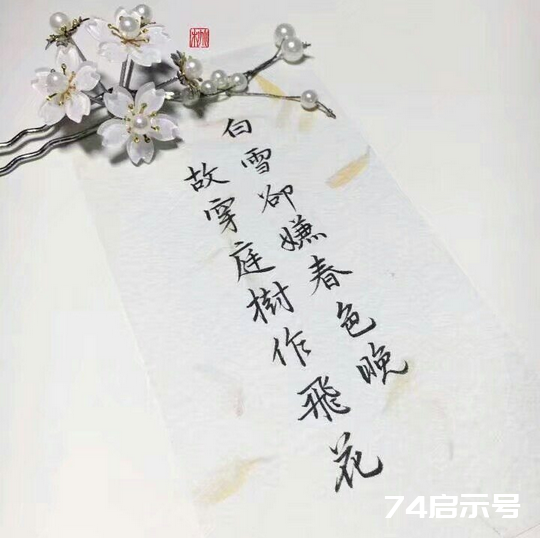 白雪卻嫌春色晚
故穿庭樹作飛花
74启示号